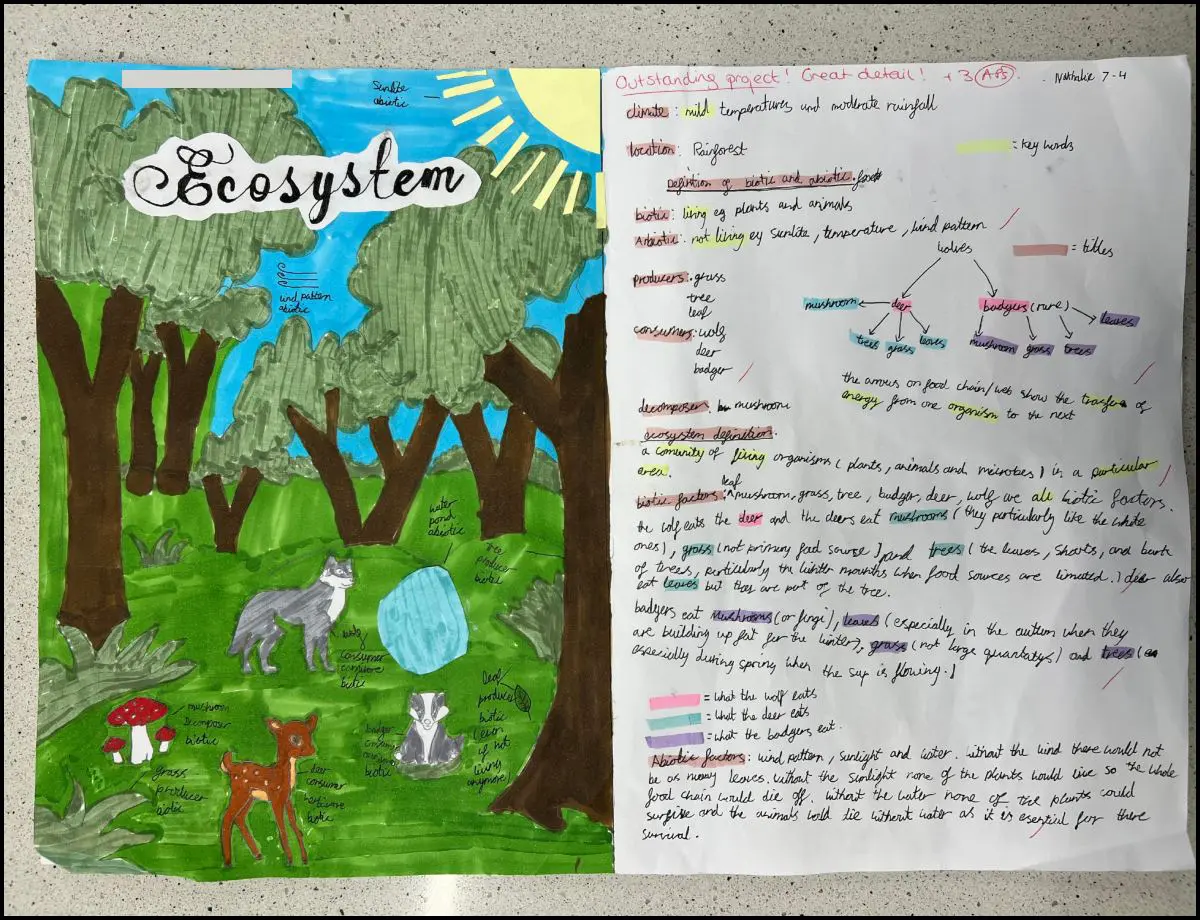 Sunlite
abiotic
Ecosystem
wind pattern
abiotic
water
pond
abiotic
tree
producer
biotic
wolf
consumer
carnivore
biotic
mushroom
Decomposer
biotic
grass
producer
biotic
deer
consumer
herbivore
biotic
badger
consumer
omnivore
biotic
leaf
producer
biotic
(even
if not
living
anymore)
Outstanding project! Great detail! +3 APS.
Nathalie 7-4
climate: mild temperatures and moderate rainfall
location: Rainforest
= key words
Definition of biotic and abiotic
biotic: living eg plants and animals
Anbiotic: not living eg sunlite, temperature, wind pattern
= titles
producers: grass
tree
leaf
consumers: wolf
deer
badger
decomposer, mushroom
wolves
mushroom deer badgers (rare) leaves
trees grass leaves mushroom grass trees
the arrows on food chain/web show the transfere of
energy from one organism to the next
ecosystem definition.
a comunity of living organisms (plants, animals and microbes) in a particular
area.
biotic factors: leaf ^ mushroom, grass, tree, badger, deer, wolf are all biotic factors.
the wolf eats the deer and the deers eat mushrooms (they particularly like the white
ones), grass (not primary food sourse) and trees (the leaves, shoots, and bark
of trees, particularly the winter mounths when food sources are limated.) deer also
eat leaves but they are part of the tree.
badgers eat mushrooms (or fingi), leaves (especially in the autum when they
are building up fat for the winter), grass (not large quantatys) and trees (
especially during spring when the sup is flowing.)
= what the wolf eats
= what the deer eats
= what the badgers eat.
Abiotic factors: wind pattern, sunlight and water. without the wind there would not
be as many leaves. without the sunlight none of the plants would live so the whole
food chain would die off. without the water none of the plants could
surfive and the animals wold die without water as it is esential for there
survival.